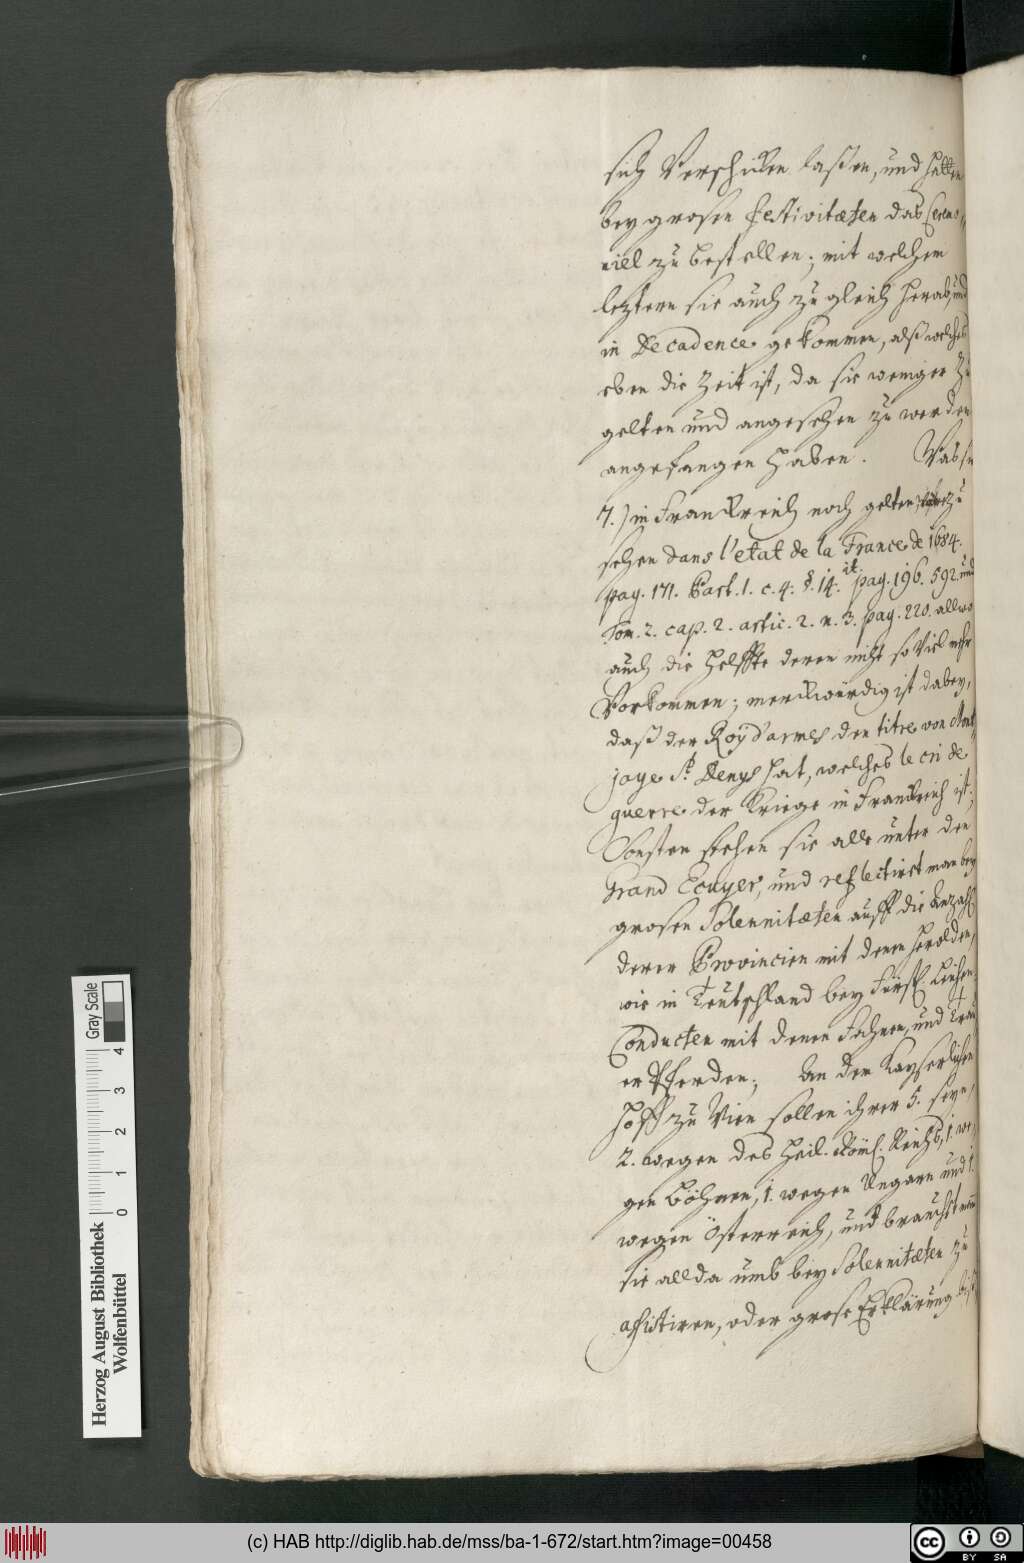 sich Verschicken laßen, und hatten
bey grosen Festivitæten das Ceremo-
niel zu bestellen; mit welchem
leztern sie auch zugleich herab, und
in Decadence gekommen, alß welches
eben die Zeit ist, da sie weniger zu
gelten und angesehen zu werden
angefangen haben. Was sie
7.) in Franckreich noch gelten, zu
sehen dans l'etat de la France de 1684.
pag. 171. Part. 1. c. 4. §. 14. it. pag. 196. 592. und
Tom. 2. cap. 2. artic. 2. n. 3. pag. 220. allwo
auch die Helffte deren nicht so Viel mehr
Vorkommen; merckwürdig ist dabey,
daß der Roy d'armes den titre von Mont-
joye St. Denys hat, welches le cri de
guerre der Kriege in Franckreich ist.
Sonsten stehen sie alle unter den
Grand Ecuyer, und reflectirt man bey
grosen Solennitæten auff die Anzahl
derer Provincien mit denen Herolden,
wie in Teutschland bey Fürstl. Leichen
Conducten mit denen Fahnen, und Trau
er Pferden; An dem Kayserlichen
Hoff zu Wien sollen ihrer 5. seyn,
2. wegen des Heil. Röm. Reichs, 1. we-
gen Böhmen, 1. wegen Ungarn und 1.
wegen Österreich, und braucht man
sie allda umb bey Solennitæten zu
assistiren, oder grose Erklärung
Herzog August Bibliothek
Wolfenbüttel
0 1 2 3 4
Gray Scale
(c) HAB http://diglib.hab.de/mss/ba-1-672/start.htm?image=00458
cc BY SA